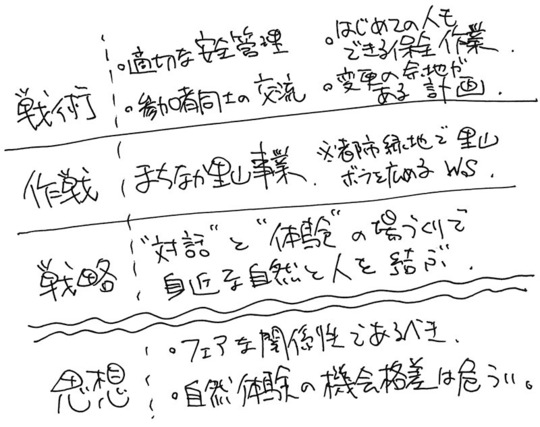 戦術
・適切な安全管理
・参加者同士の交流
・はじめての人も
できる保全作業.
・変更の余地が
ある計画.
作戦
まちなか里山事業.
※都市緑地で里山
ボラを広めるWS.
戦略
"対話"と"体験"の場づくりで
身近な自然と人を結ぶ.
思想
・フェアな関係性であるべき.
・自然体験の機会格差は危うい。